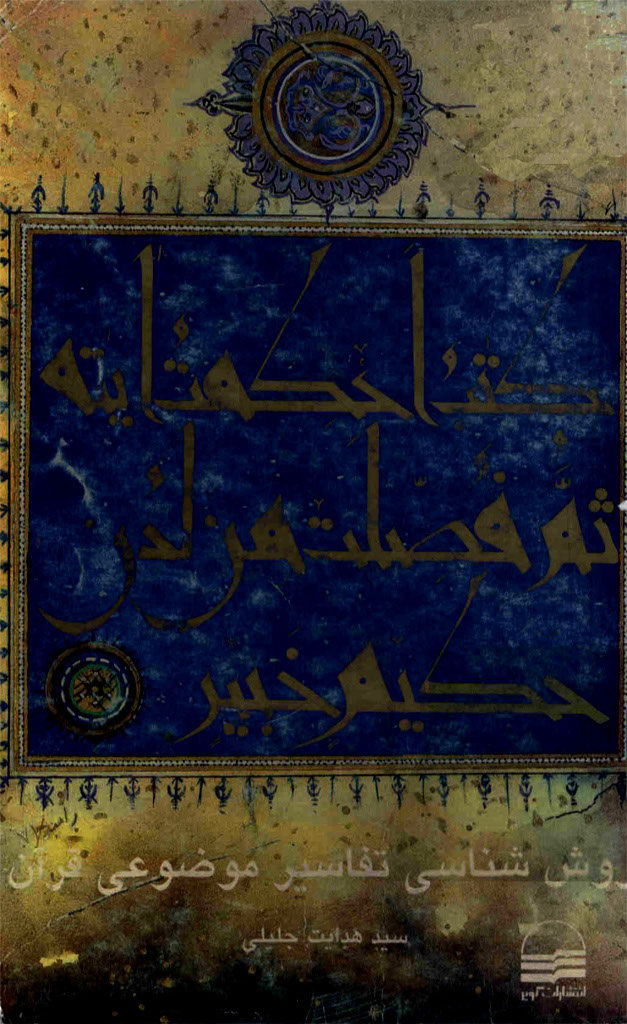 كتب احكمت ايته
ثم فصلت من لدن
حكيم خبير
روش شناسی تفاسیر موضوعی قرآن
سید هدایت جلیلی
انتشارات کویر